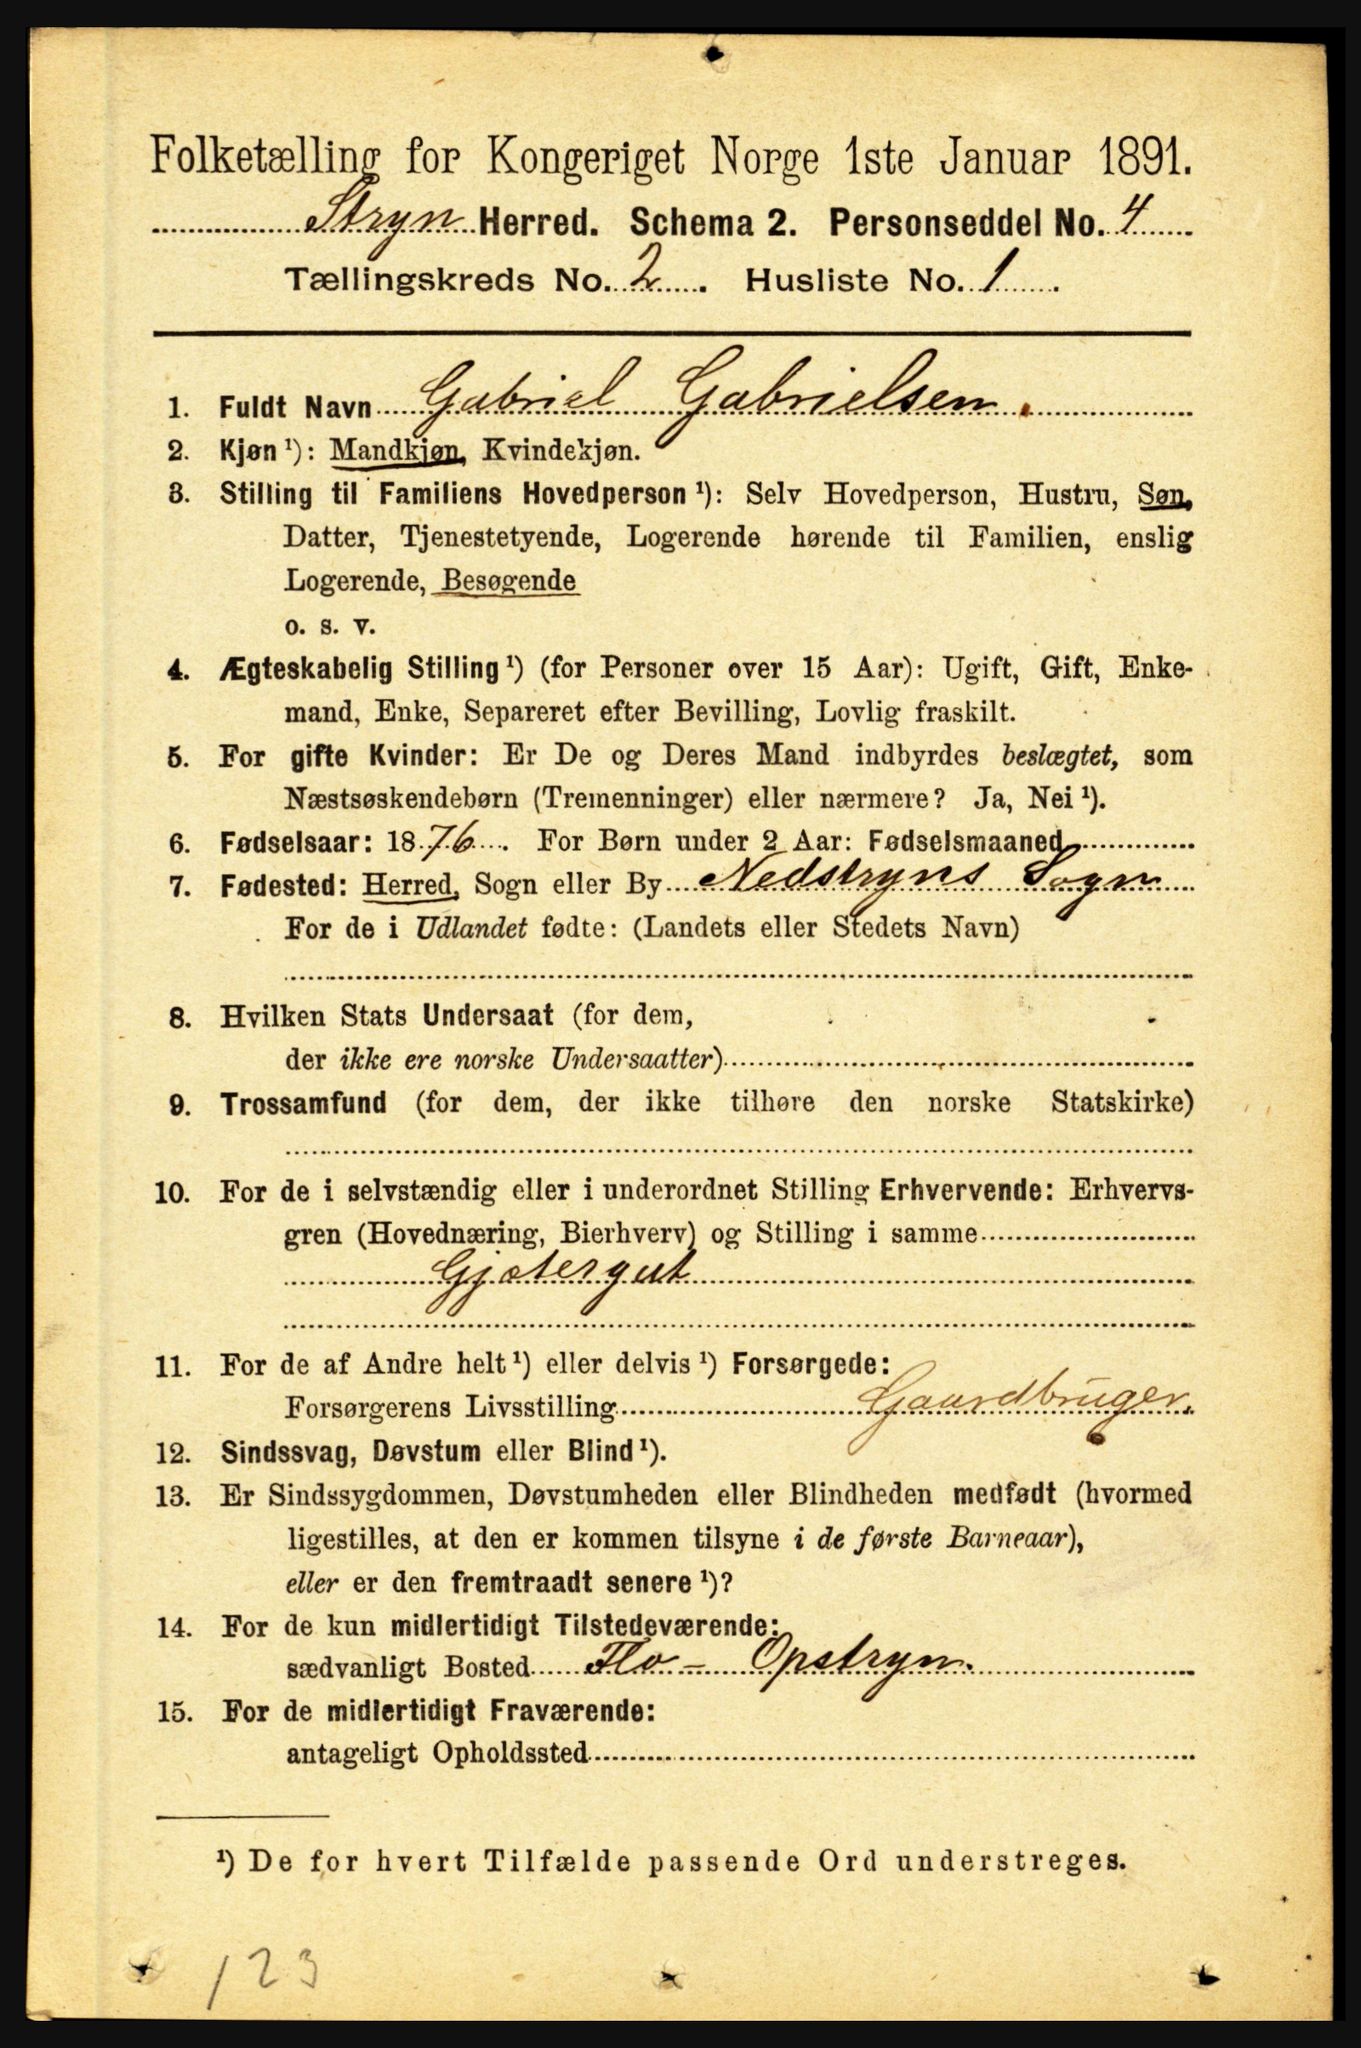 Folketælling for Kongeriget Norge 1ste Januar 1891.
Stryn Herred. Schema 2. Personseddel No. 4
Tællingskreds No. 2. Husliste No. 1.
1. Fuldt Navn Gabriel Gabrielsen.
2. Kjøn ¹): Mandkjøn, Kvindekjøn.
3. Stilling til Familiens Hovedperson ¹): Selv Hovedperson, Hustru, Søn,
Datter, Tjenestetyende, Logerende hørende til Familien, enslig
Logerende, Besøgende
o. s. v.
4. Ægteskabelig Stilling ¹) (for Personer over 15 Aar): Ugift, Gift, Enke-
mand, Enke, Separeret efter Bevilling, Lovlig fraskilt.
5. For gifte Kvinder: Er De og Deres Mand indbyrdes beslægtet, som
Næstsøskendebørn (Tremenninger) eller nærmere? Ja, Nei ¹).
6. Fødselsaar: 1876. For Børn under 2 Aar: Fødselsmaaned
7. Fødested: Herred, Sogn eller By Nedstryns Sogn
For de i Udlandet fødte: (Landets eller Stedets Navn)
8. Hvilken Stats Undersaat (for dem,
der ikke ere norske Undersaatter)
9. Trossamfund (for dem, der ikke tilhøre den norske Statskirke)
10. For de i selvstændig eller i underordnet Stilling Erhvervende: Erhvervs-
gren (Hovednæring, Bierhverv) og Stilling i samme
Gjætergut
11. For de af Andre helt ¹) eller delvis ¹) Forsørgede:
Forsørgerens Livsstilling Gaardbruger.
12. Sindssvag, Døvstum eller Blind ¹).
13. Er Sindssygdommen, Døvstumheden eller Blindheden medfødt (hvormed
ligestilles, at den er kommen tilsyne i de første Barneaar),
eller er den fremtraadt senere ¹)?
14. For de kun midlertidigt Tilstedeværende:
sædvanligt Bosted Flo - Opstryn.
15. For de midlertidigt Fraværende:
antageligt Opholdssted
¹) De for hvert Tilfælde passende Ord understreges.
123